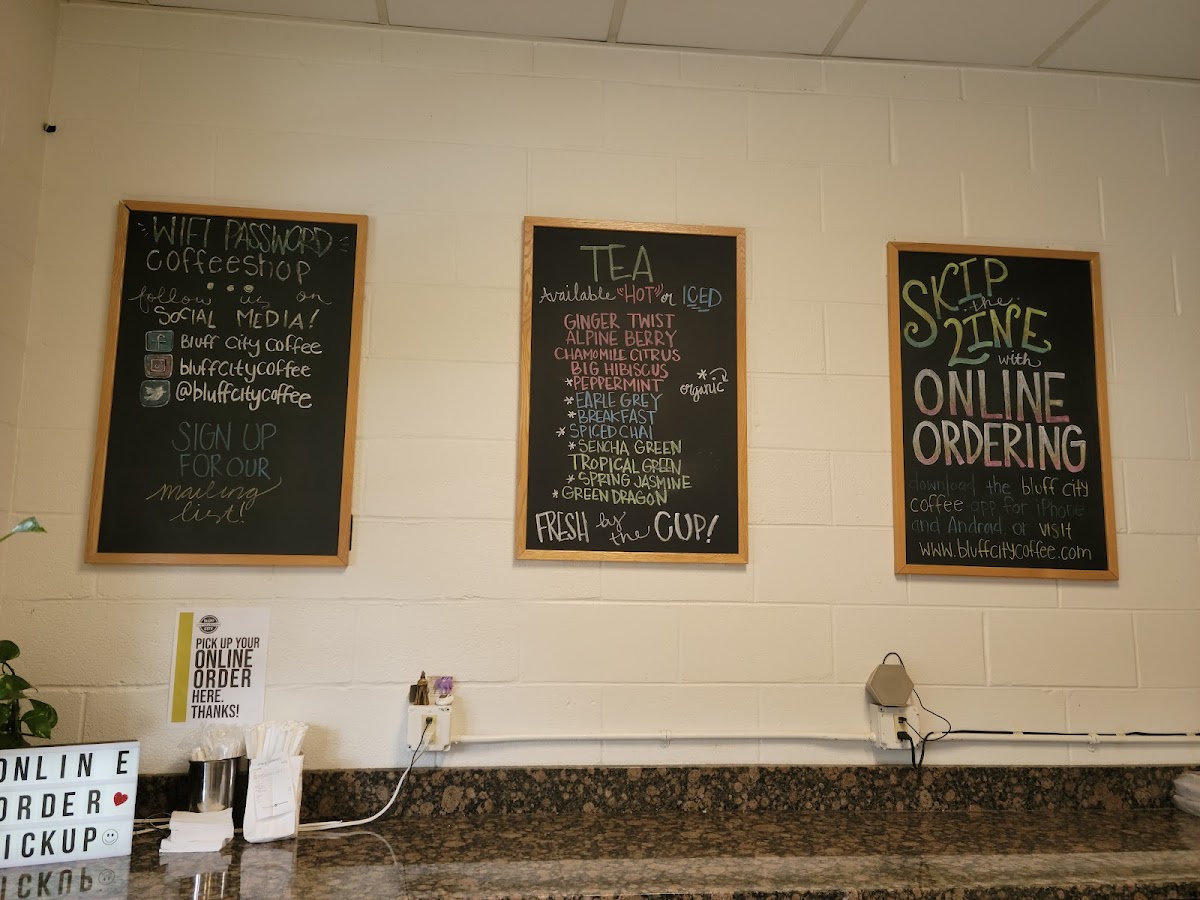 WIFI PASSWORD
coffeeshop
follow us on
SOCIAL MEDIA!
f Bluff City Coffee
bluffcitycoffee
@bluffcitycoffee
SIGN UP
FOR OUR
mailing
list!
TEA
Available "HOT" or ICED
GINGER TWIST
ALPINE BERRY
CHAMOMILE CITRUS
BIG HIBISCUS
*PEPPERMINT
* organic
*EARLE GREY
*BREAKFAST
*SPICED CHAI
*SENCHA GREEN
TROPICAL GREEN
*SPRING JASMINE
*GREEN DRAGON
FRESH by the CUP!
SKIP
the
LINE
with
ONLINE
ORDERING
download the bluff city
coffee app for iPhone
and Android or visit
www.bluffcitycoffee.com
PICK UP YOUR
ONLINE
ORDER
HERE.
THANKS!
ONLINE
ORDER
ICKUP